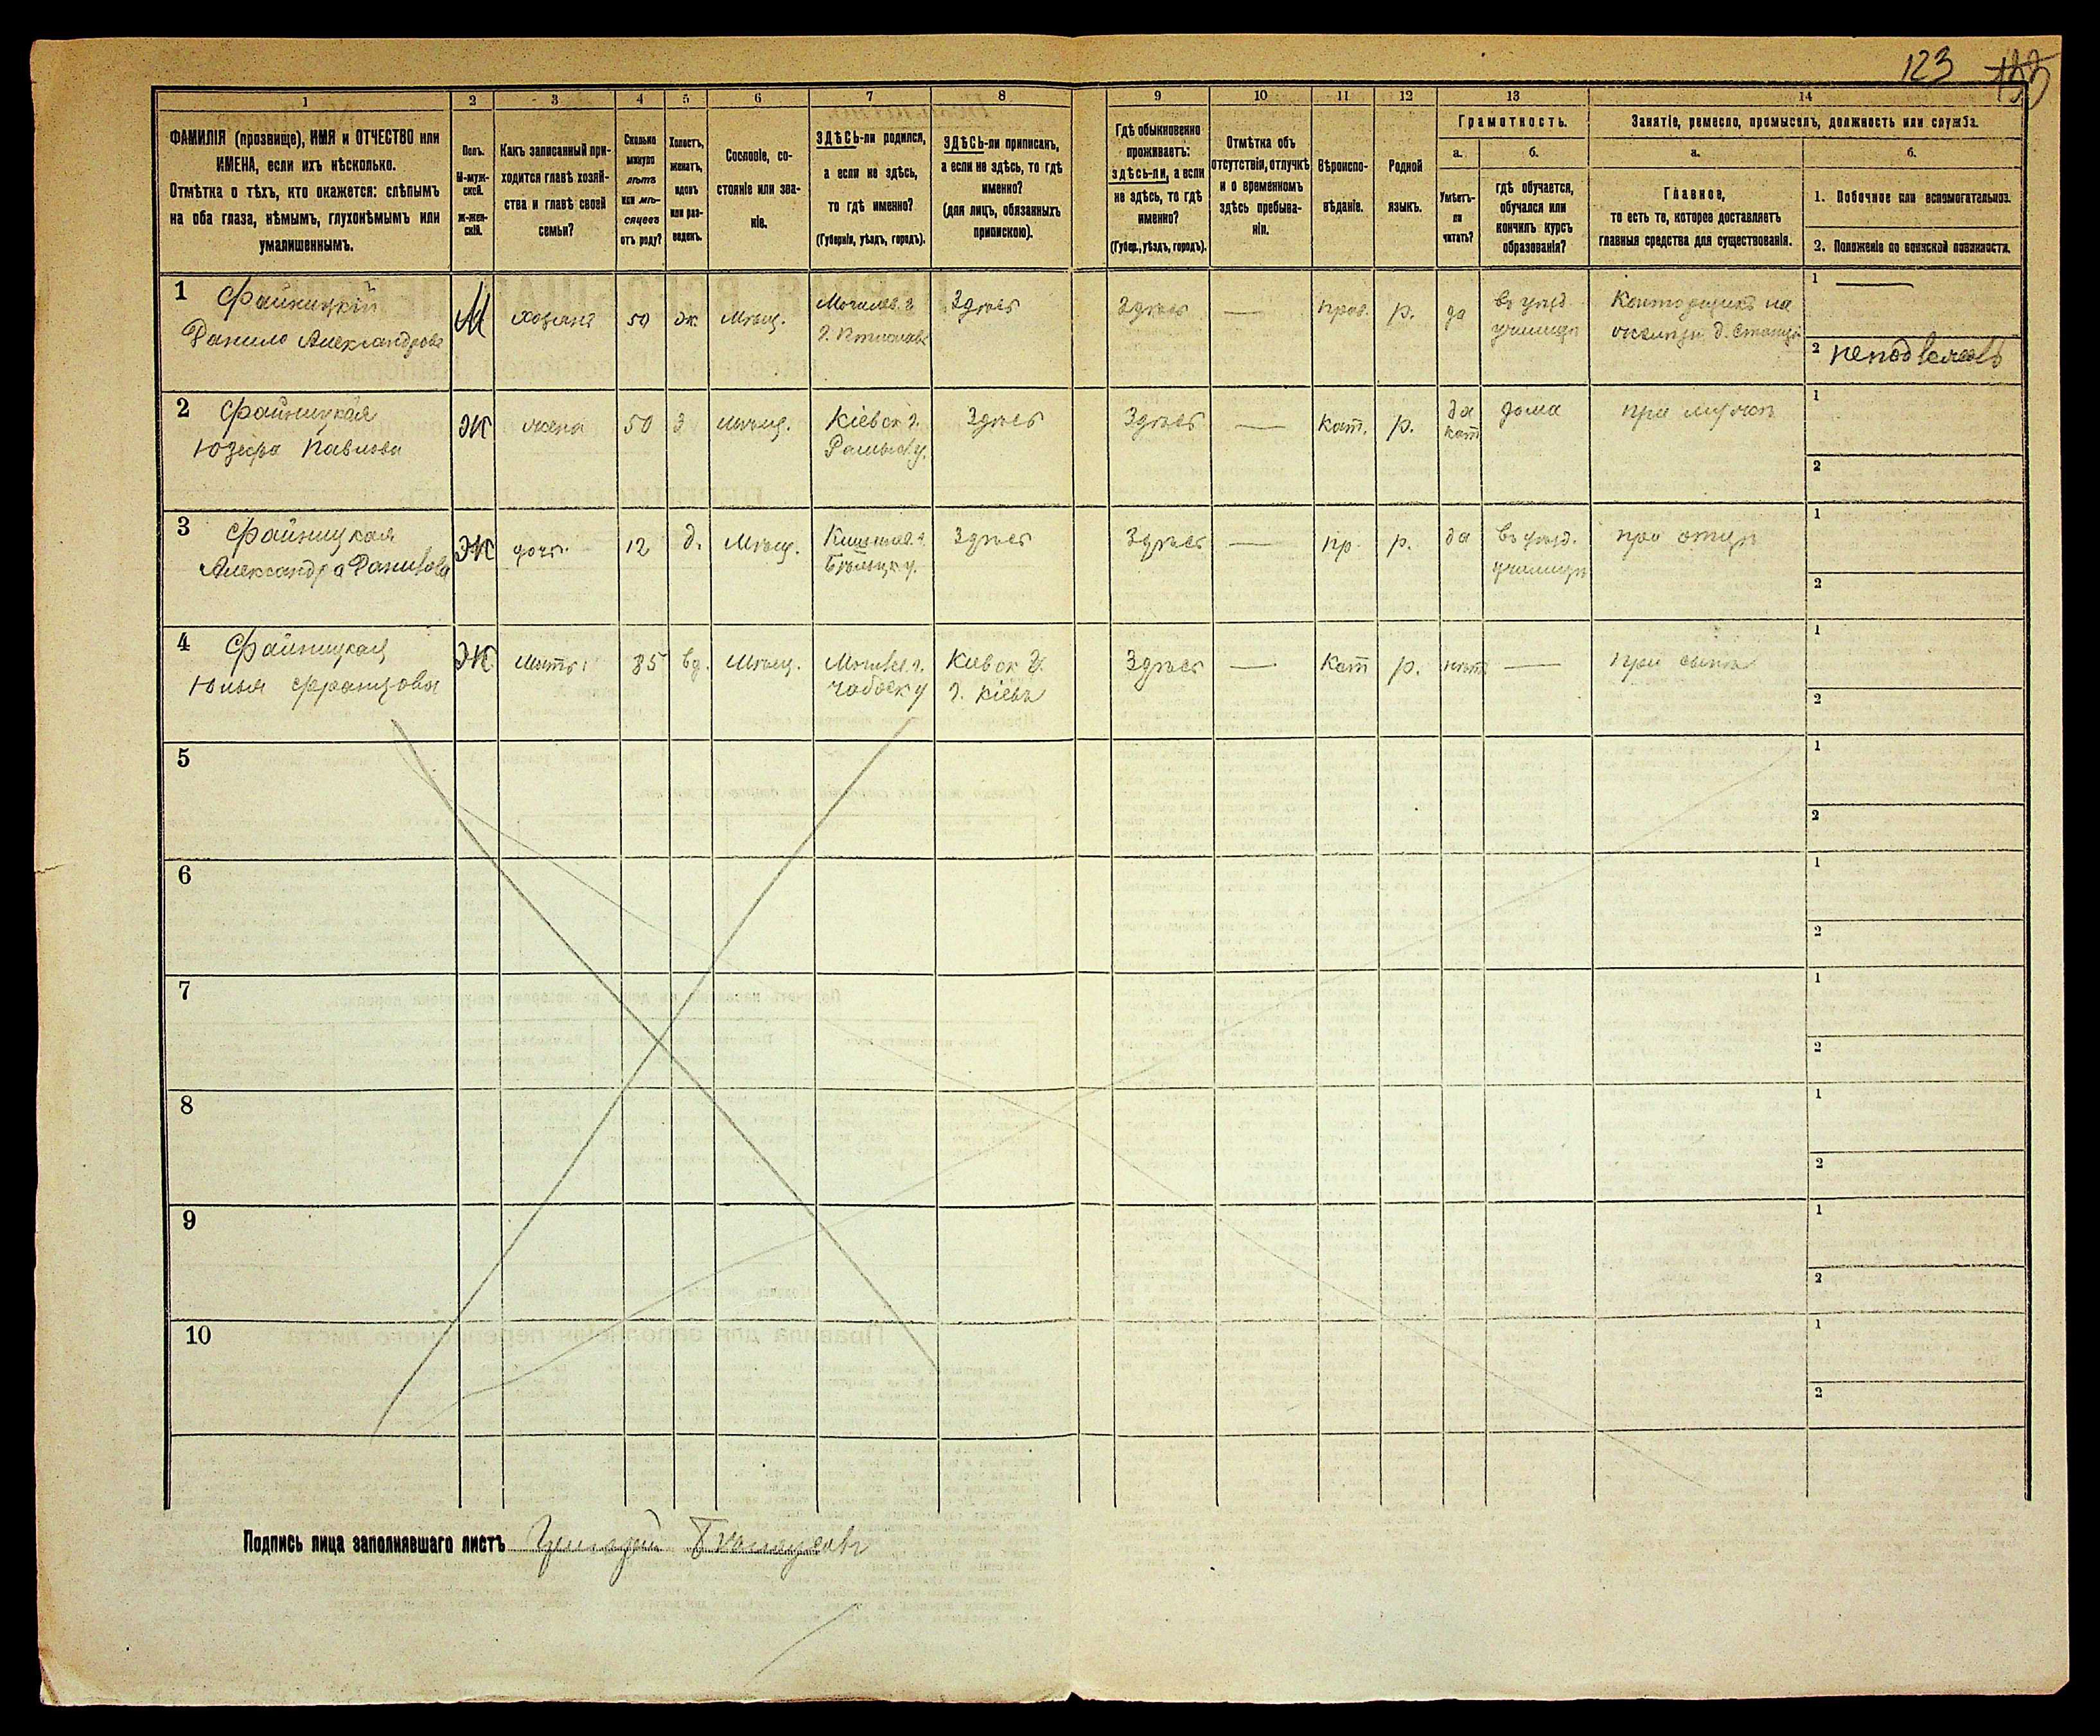 123
133
1
2
3
4
5
6
7
8
9
10
11
12
13
14
ФАМИЛІЯ (прозвище), ИМЯ и ОТЧЕСТВО или
ИМЕНА, если ихъ нѣсколько.
Отмѣтка о тѣхъ, кто окажется: слѣпымъ
на оба глаза, нѣмымъ, глухонѣмымъ или
умалишеннымъ.
Полъ.
М-муж-
ской.
Ж-жен-
скій.
Какъ записанный при-
ходится главѣ хозяй-
ства и главѣ своей
семьи?
Сколько
минуло
лѣтъ
или мѣ-
сяцевъ
отъ роду?
Холостъ,
женатъ,
вдовъ
или раз-
веденъ.
Сословіе, со-
стояніе или зва-
ніе.
ЗДѢСЬ-ли родился,
а если не здѣсь,
то гдѣ именно?
(Губернія, уѣздъ, городъ).
ЗДѢСЬ-ли приписанъ,
а если не здѣсь, то гдѣ
именно?
(для лицъ, обязанныхъ
припискою).
Гдѣ обыкновенно
проживаетъ:
здѣсь-ли, а если
не здѣсь, то гдѣ
именно?
(Губер., уѣздъ, городъ).
Отмѣтка объ
отсутствіи, отлучкѣ
и о временномъ
здѣсь пребыва-
ніи.
Вѣроиспо-
вѣданіе.
Родной
языкъ.
Грамотность.
а.
Умѣетъ-
ли
читать?
б.
гдѣ обучается,
обучался или
кончилъ курсъ
образованія?
Занятіе, ремесло, промыселъ, должность или служба.
а.
Главное,
то есть то, которое доставляетъ
главныя средства для существованія.
б.
1. Побочное или вспомогательное.
2. Положеніе по воинской повинности.
1 Файницкій
Данило Александровъ
М
хозяинъ
50
ж
Мѣщ.
Могилев. г.
Здѣсь
Здѣсь
—
прав.
р.
да
въ уѣзд.
училищѣ
Конторщикъ на
1 —
2 неподлежитъ
2 Файницкая
Юзефа Павлова
Ж
жена
50
З
мѣщ.
Кіевск г.
Здѣсь
Здѣсь
—
кат.
р.
да
кат
дома
при мужѣ
1
2
3 Файницкая
Александра Данилова
Ж
дочь
12
д.
Мѣщ.
Кишинев. г.
Бѣльцк у.
Здѣсь
Здѣсь
—
пр.
р.
да
въ уѣзд.
училищѣ
при отцѣ
1
2
4 Файницкая
Юлія Францова
Ж
Мать
85
вд.
Мѣщ.
Могилев. г.
Кіевск г.
г. Кіевъ
Здѣсь
—
Кат
р.
нѣтъ
—
при сынѣ
1
2
5
1
2
6
1
2
7
1
2
8
1
2
9
1
2
10
1
2
Подпись лица заполнявшаго листъ